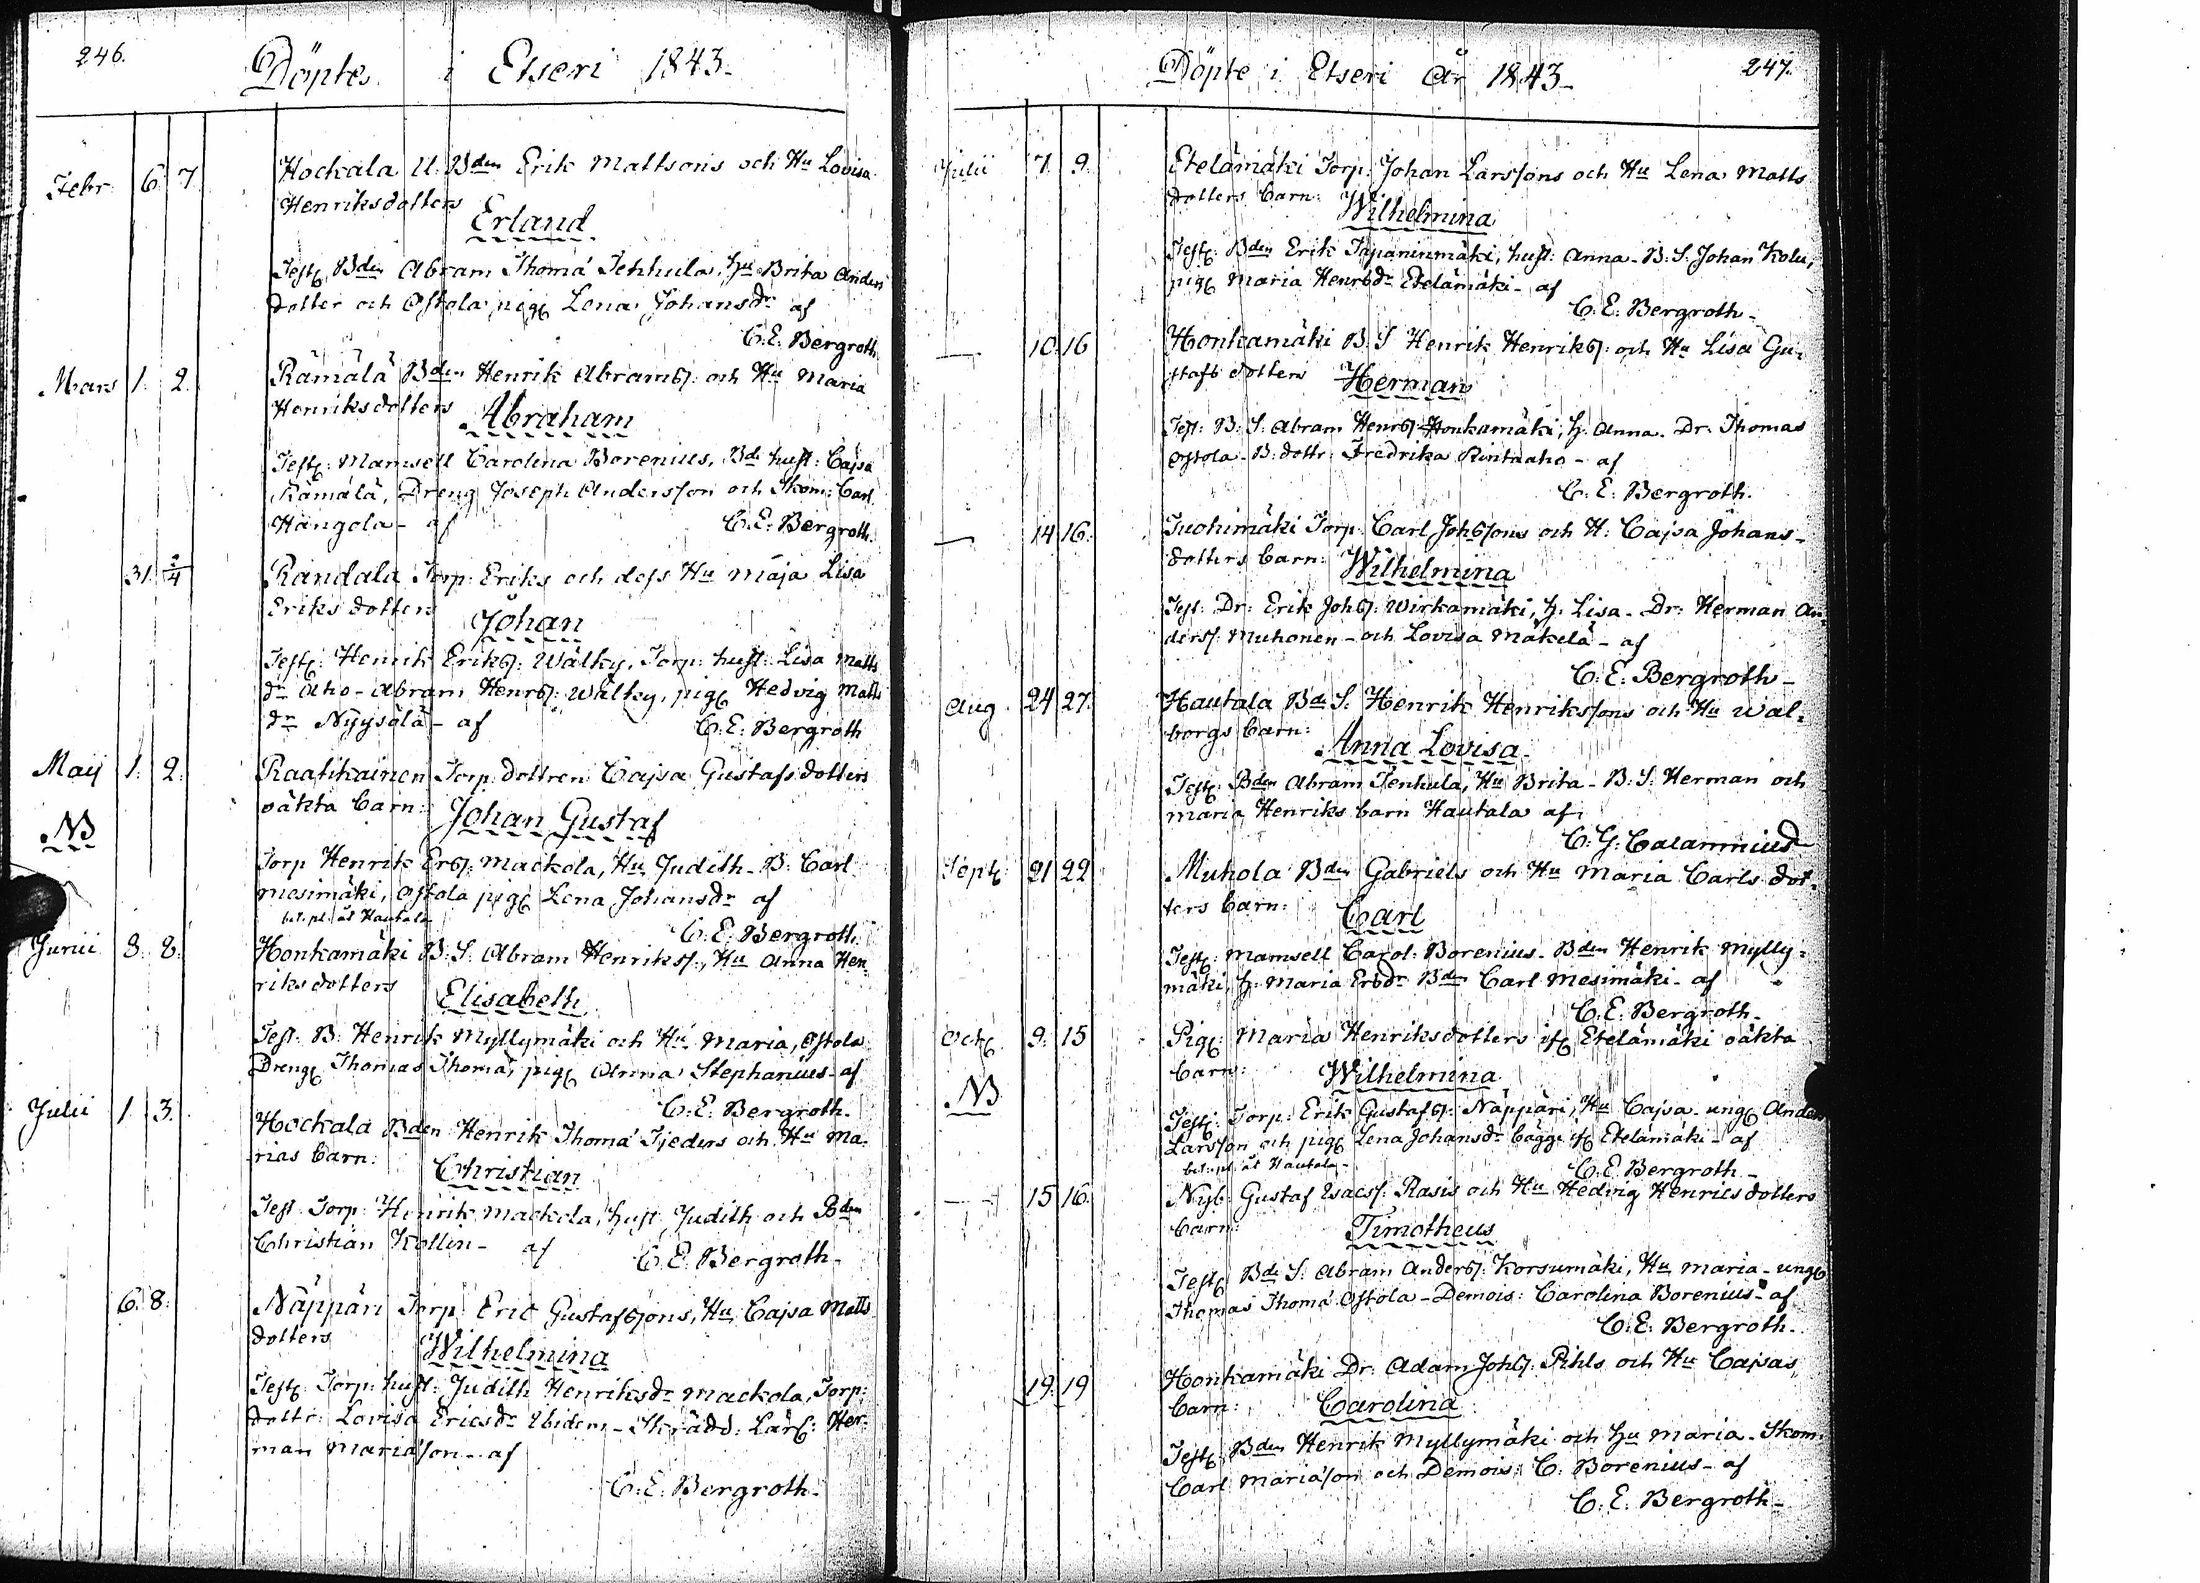 246.
Döpte i Etseri 1843.
Febr. 6. 7. Hockala U. Bden Erik Mattsons och Hu Lovisa
Henriksdotters
Erland
Test: Bden Abram Thomá Jenkula, hu Brita Anders
dotter och Ostola pig: Lena Johansdr af
C. E. Bergroth
Mars 1. 2. Rämälä Bden Henrik Abrams: och Hu Maria
Henriksdotters
Abraham
Test: Mamsell Carolina Borenius, Bde hust: Cajsa
Rämälä, Dreng Joseph Andersson och Skom: Carl
Hangola - af
C. E. Bergroth.
31. 2/4 Randala Torp: Eriks och dess Hu Maja Lisa
Eriksdotters
Johan
Test: Henrik Eriks: Wälky, Torp: hust: Lisa Matts
dr Aho - Abram Henrs: Wälky, pig: Hedvig Matts
dr Nyysölä - af
C. E. Bergroth
Maij 1. 2. Raatikainen Torp: dottren Cajsa Gustafsdotters
oäkta barn:
NB
Johan Gustaf
Torp Henrik Ers: Mackola, Hu Judith - B: Carl
Mesimäki, Ostola pig: Lena Johansdr af
bet. pl. åt Hautala
C. E. Bergroth.
Junii 8. 8. Honkamäki B. S. Abram Henrikss:, Hu Anna Hen
riksdotters
Elisabeth
Test: B: Henrik Myllymäki och Hu Maria, Ostola
Dreng Thomas Thomá, pig: Anna Stephanius - af
C. E. Bergroth.
Julii 1. 3. Hockala Bden Henrik Thomá Tjeders och Hu Ma-
rias barn:
Christian
Test: Torp: Henrik Mackola, hust Judith och Bden
Christian Kollin - af
C. E. Bergroth.
6. 8. Näppäri Torp: Eric Gustafssons, Hu Cajsa Matts
dotters
Wilhelmina
Test: Torp: hust: Judith Henriksdr Mackola, Torp:
dottr: Lovisa Ericsdr Ibidem - Skrädd: Lärl: Her-
man Mariäson - af
C. E. Bergroth.
Döpte i Etseri År 1843.
247.
Julii 7. 9. Etelämäki Torp: Johan Larssons och Hu Lena Matts
dotters barn:
Wilhelmina
Test: Bden Erik Tapaninmäki, hust: Anna - B: S: Johan Kolu,
pig: Maria Henrsdr Etelämäki - af
C. E. Bergroth -
— 10. 16 Honkamäki B. S Henrik Henriks: och Hu Lisa Gu-
stafs dotters
Herman
Test: B: S: Abram Henrs: Honkamäki, h: Anna. Dr: Thomas
Ostola - B: dottr: Fredrika Rintaaho - af
C. E: Bergroth.
— 14 16. Tuohimäki Torp: Carl Johssons och H: Cajsa Johans-
dotters barn:
Wilhelmina
Test: Dr: Erik Johs: Wirkamäki, h: Lisa - Dr: Herman An-
derss: Muhonen - och Lovisa Mäkelä - af
C. E: Bergroth -
Aug. 24 27. Hautala Bde S. Henrik Henrikssons och Hu Wal-
borgs barn:
Anna Lovisa.
Test: Bden Abram Jenkula, Hu Brita - B: S: Herman och
Maria Henriks barn Hautala af
C. G: Calamnius
Sept: 21 22 Muhola Bden Gabriels och Hu Maria Carls dot-
ters barn:
Carl
Test: Mamsell Carol: Borenius - Bden Henrik Mylly-
mäki, h: Maria Ersdr Bden Carl Mesimäki - af
C. E: Bergroth -
Oct: 9. 15 Pig: Maria Henriksdotters ifr: Etelämäki oäkta
barn:
NB
Wilhelmina
Test: Torp: Erik Gustafs: Näppäri, Hu Cajsa - ung: Anders
Larsson och pig: Lena Johansdr bägge ifr: Etelämäki - af
bet. pl. åt Hautala -
C. E. Bergroth -
— 15 16. Nyb: Gustaf Isacs: Rasis och Hu Hedvig Henricsdotters
barn:
Timotheus
Test: Bde S: Abram Anders: Korsumäki, Hu Maria - ung:
Thomas Thomá Ostola - Demois: Carolina Borenius - af
C. E. Bergroth.
19. 19 Honkamäki Dr: Adam Johs: Pihls och Hu Cajsas,
barn:
Carolina
Test: Bden Henrik Myllymäki och hu Maria - Skom:
Carl Mariäson och Demois: C. Borenius - af
C. E. Bergroth -